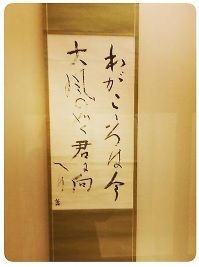 わがこゝろは今
大風の如く君に向
へり